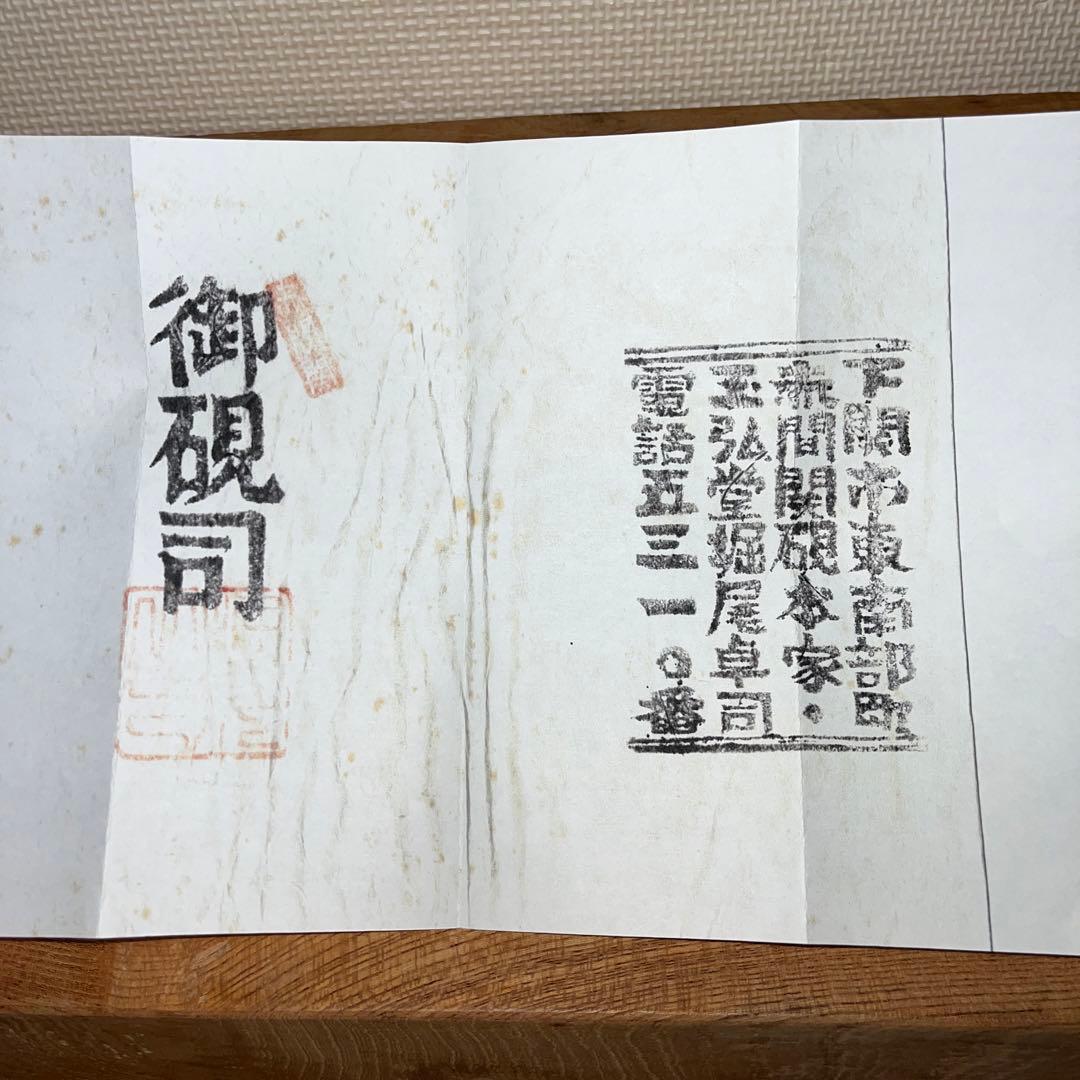 下関市東南部町
赤間関硯本家・
玉弘堂堀尾卓司
電話五三一〇番
御硯司